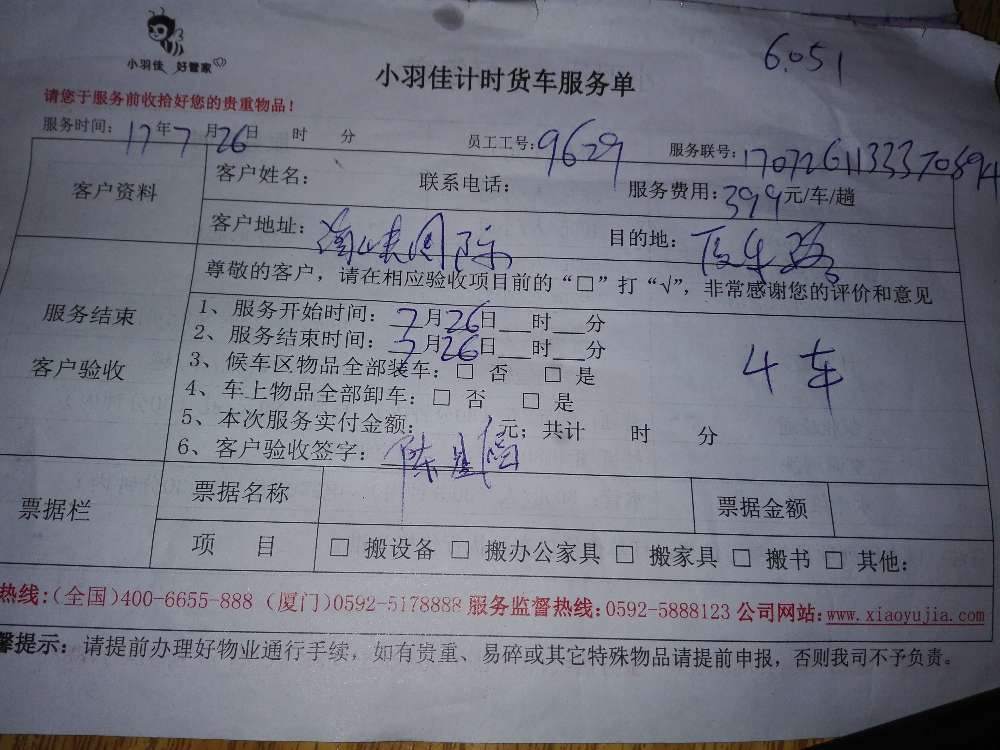 6.051
小羽佳 好管家
小羽佳计时货车服务单
请您于服务前收拾好您的贵重物品！
服务时间：17年7月26日 时 分 员工工号：9629 服务联号：
客户资料 客户姓名： 联系电话： 服务费用：399元/车/趟
客户地址：海峡国际 目的地：
尊敬的客户，请在相应验收项目前的“□”打“√”，非常感谢您的评价和意见
服务结束
客户验收
1、服务开始时间：7月26日___时___分
2、服务结束时间：7月26日___时___分
3、候车区物品全部装车：□ 否 □ 是
4、车上物品全部卸车：□ 否 □ 是
5、本次服务实付金额： 元；共计 时 分
6、客户验收签字：陈
4车
票据栏 票据名称 票据金额
项 目 □ 搬设备 □ 搬办公家具 □ 搬家具 □ 搬书 □ 其他：
热线：(全国)400-6655-888 (厦门)0592-5178888 服务监督热线：0592-5888123 公司网站：www.xiaoyujia.com
馨提示：请提前办理好物业通行手续，如有贵重、易碎或其它特殊物品请提前申报，否则我司不予负责。